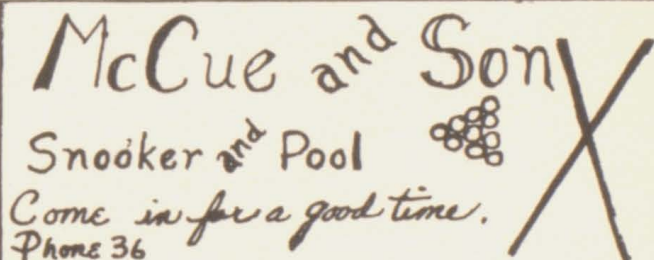 McCue and Son
Snooker and Pool
Come in for a good time.
Phone 36